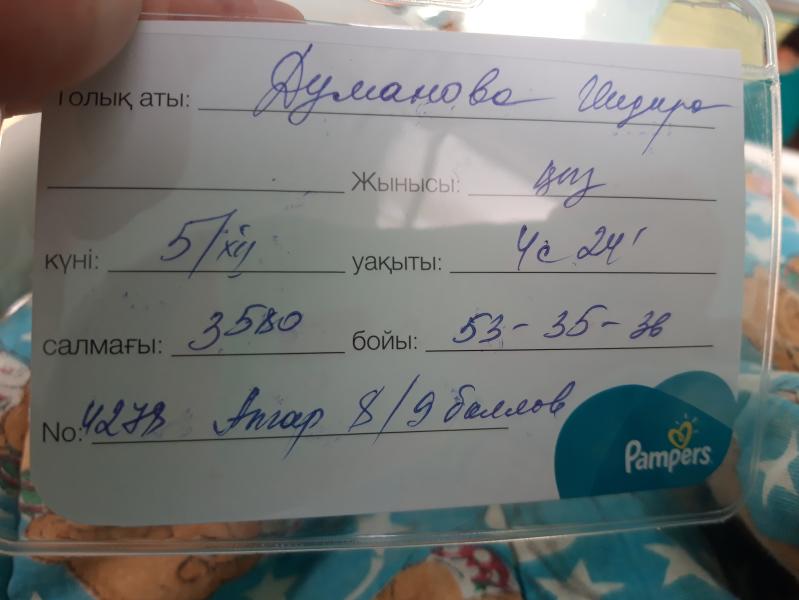 Толық аты: Думанова Индира
Жынысы: қыз
күні: 5/XII уақыты: 4с 24'
салмағы: 3580 бойы: 53-35-36
No: Апгар 8/9 баллов
Pampers